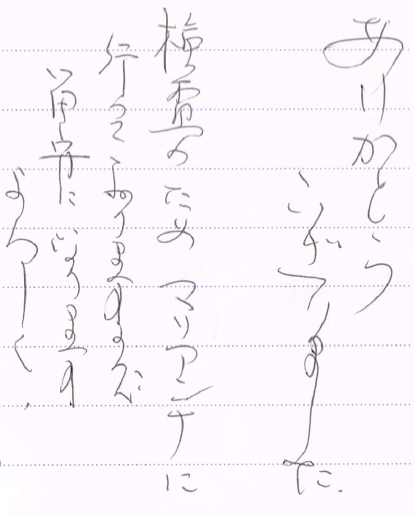 ありがとう
ございました.
検査のため マリアンナに
行って おりますので
留守に
よろしく.